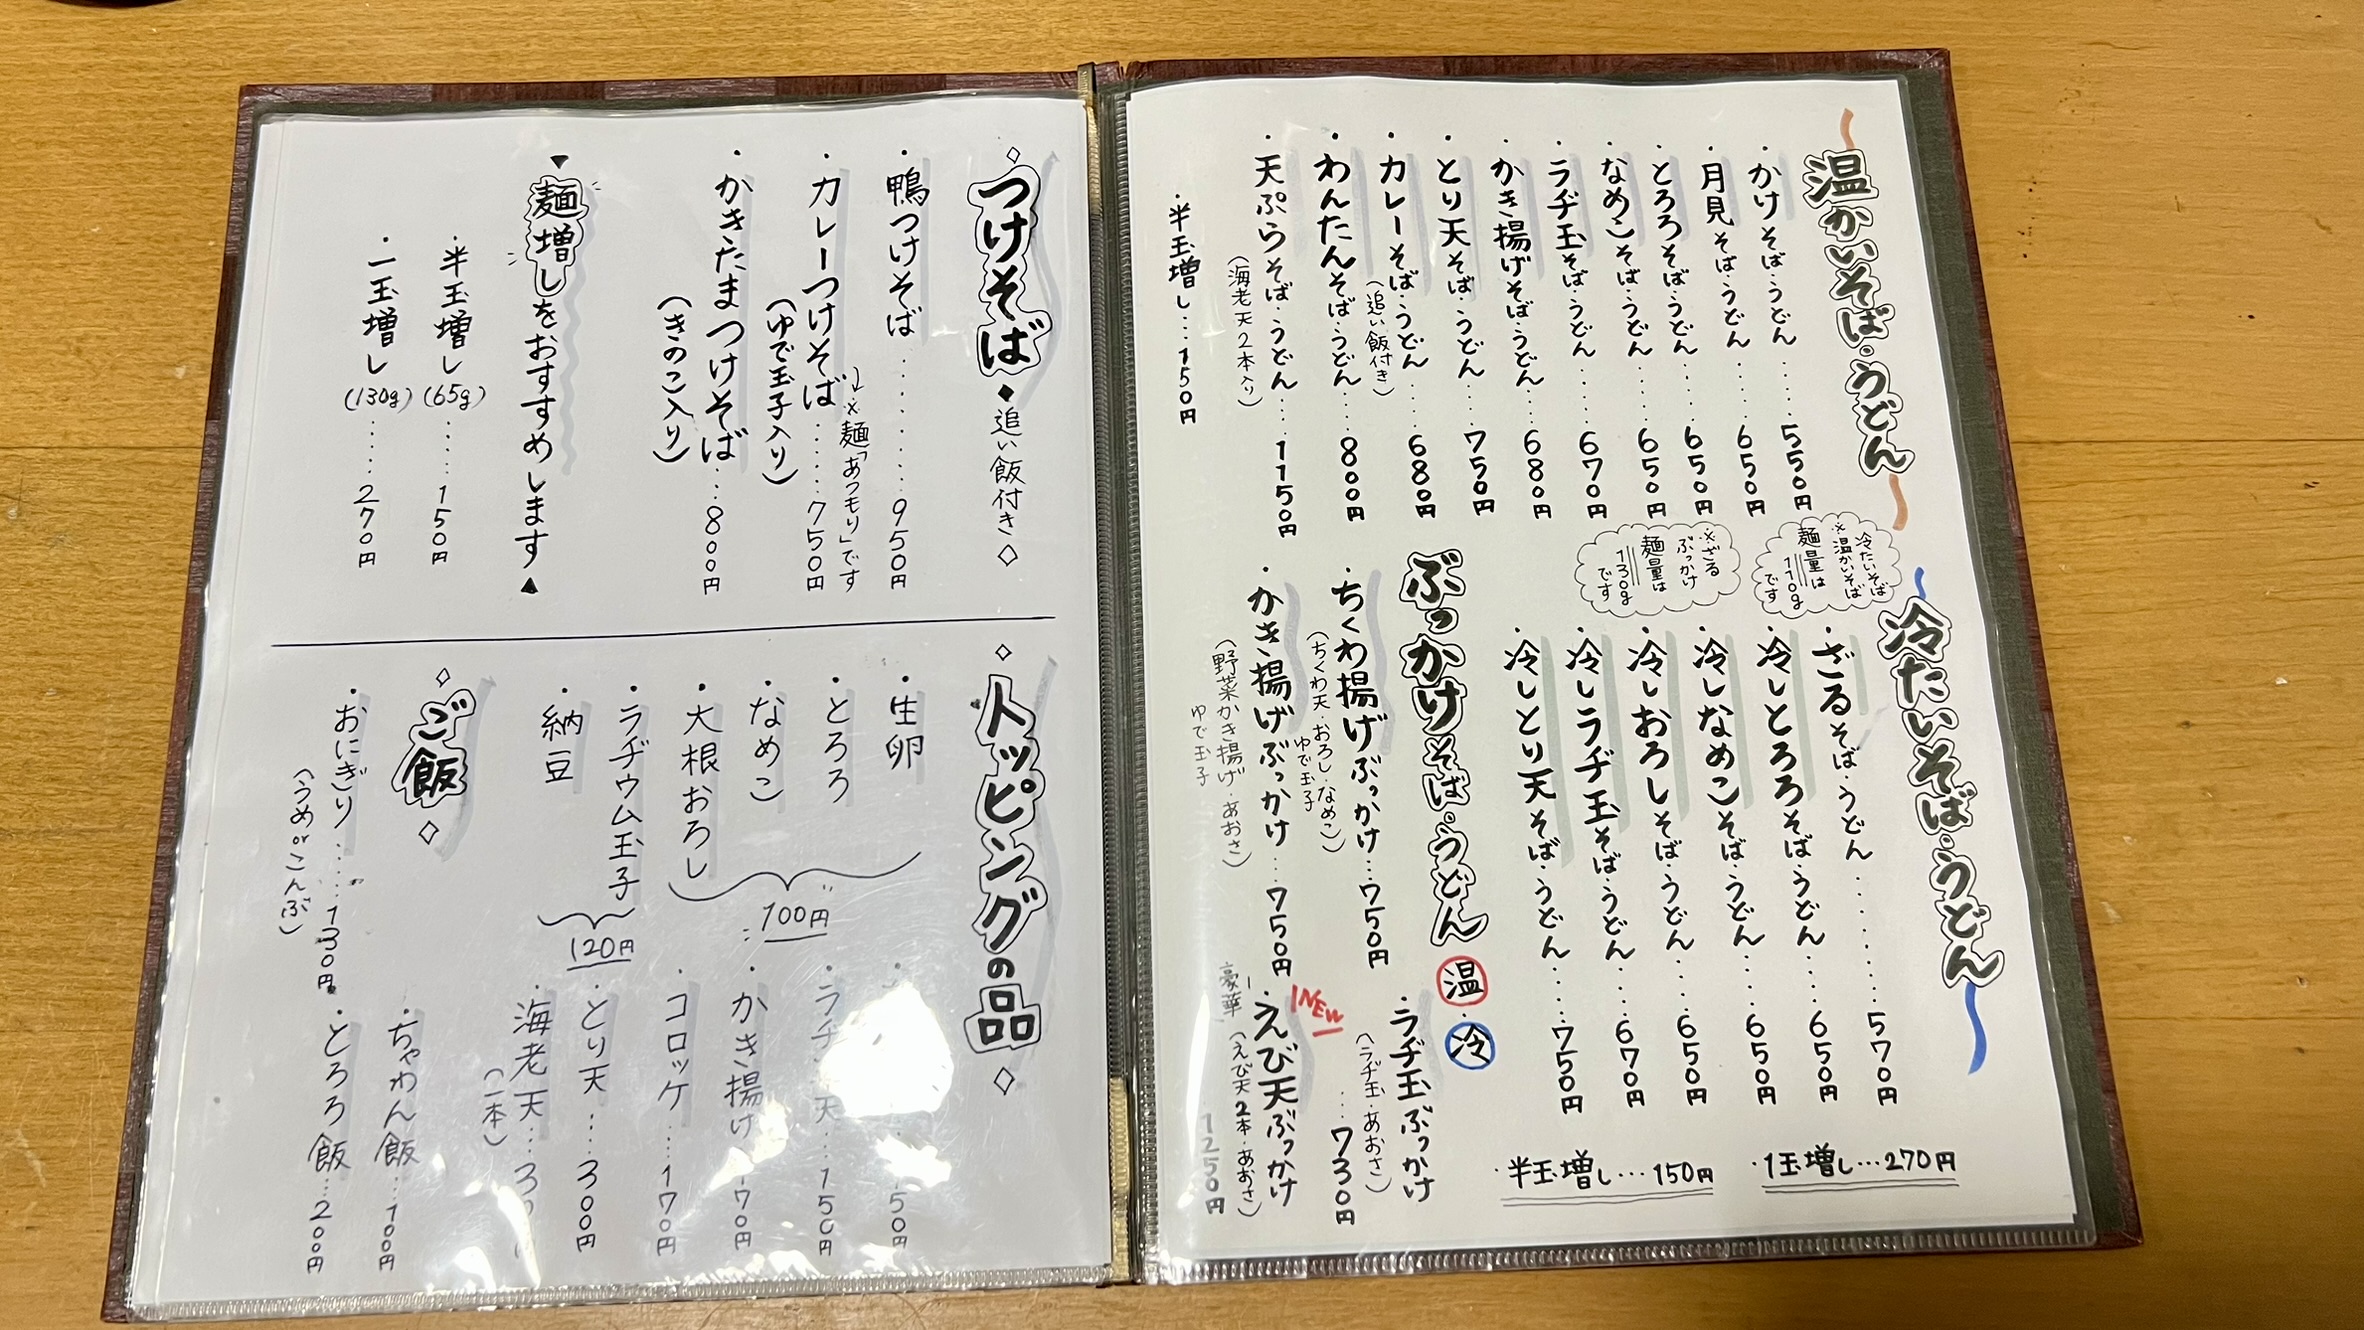 温かいそば・うどん
・かけそば・うどん……550円
・月見そば・うどん……650円
・とろろそば・うどん……650円
・なめこそば・うどん……650円
・ラヂ玉そば・うどん……670円
・かき揚げそば・うどん……680円
・とり天そば・うどん……750円
・カレーそば・うどん……680円
(追い飯付き)
・わんたんそば・うどん……800円
・天ぷらそば・うどん……1150円
(海老天2本入り)
・半玉増し…150円
冷たいそば
※温かいそば
麺量は
110g
です
※ざる
ぶっかけ
麺量は
130g
です
冷たいそば・うどん
・ざるそば・うどん……570円
・冷しとろろそば・うどん……650円
・冷しなめこそば・うどん……650円
・冷しおろしそば・うどん……650円
・冷しラヂ玉そば・うどん……670円
・冷しとり天そば・うどん……750円
・1玉増し…270円
・半玉増し…150円
ぶっかけそば・うどん 温・冷
・ちくわ揚げぶっかけ…750円
(ちくわ天・おろし・なめこ)
ゆで玉子
・かき揚げぶっかけ…750円
(野菜かき揚げ・あおさ)
ゆで玉子
・ラヂ玉ぶっかけ
(ラヂ玉・あおさ)
……730円
NEW
・えび天ぶっかけ
豪華
(えび天2本・あおさ)
1250円
◇つけそば◆追い飯付き◇
・鴨つけそば……950円
※麺「あつもり」です
・カレーつけそば……750円
(ゆで玉子入り)
・かきたまつけそば…800円
(きのこ入り)
▼麺増しをおすすめします▲
・半玉増し(65g)……150円
・一玉増し(130g)……270円
◇トッピングの品◇
・生卵
・とろろ
・なめこ
・大根おろし
100円
・ラヂウム玉子
・納豆
120円
50円
天…150円
・かき揚げ…170円
・コロッケ…170円
・とり天…300円
・海老天…
(一本)
◇ご飯◇
・おにぎり……130円
(うめorこんぶ)
・ちゃわん飯…100円
・とろろ飯…200円